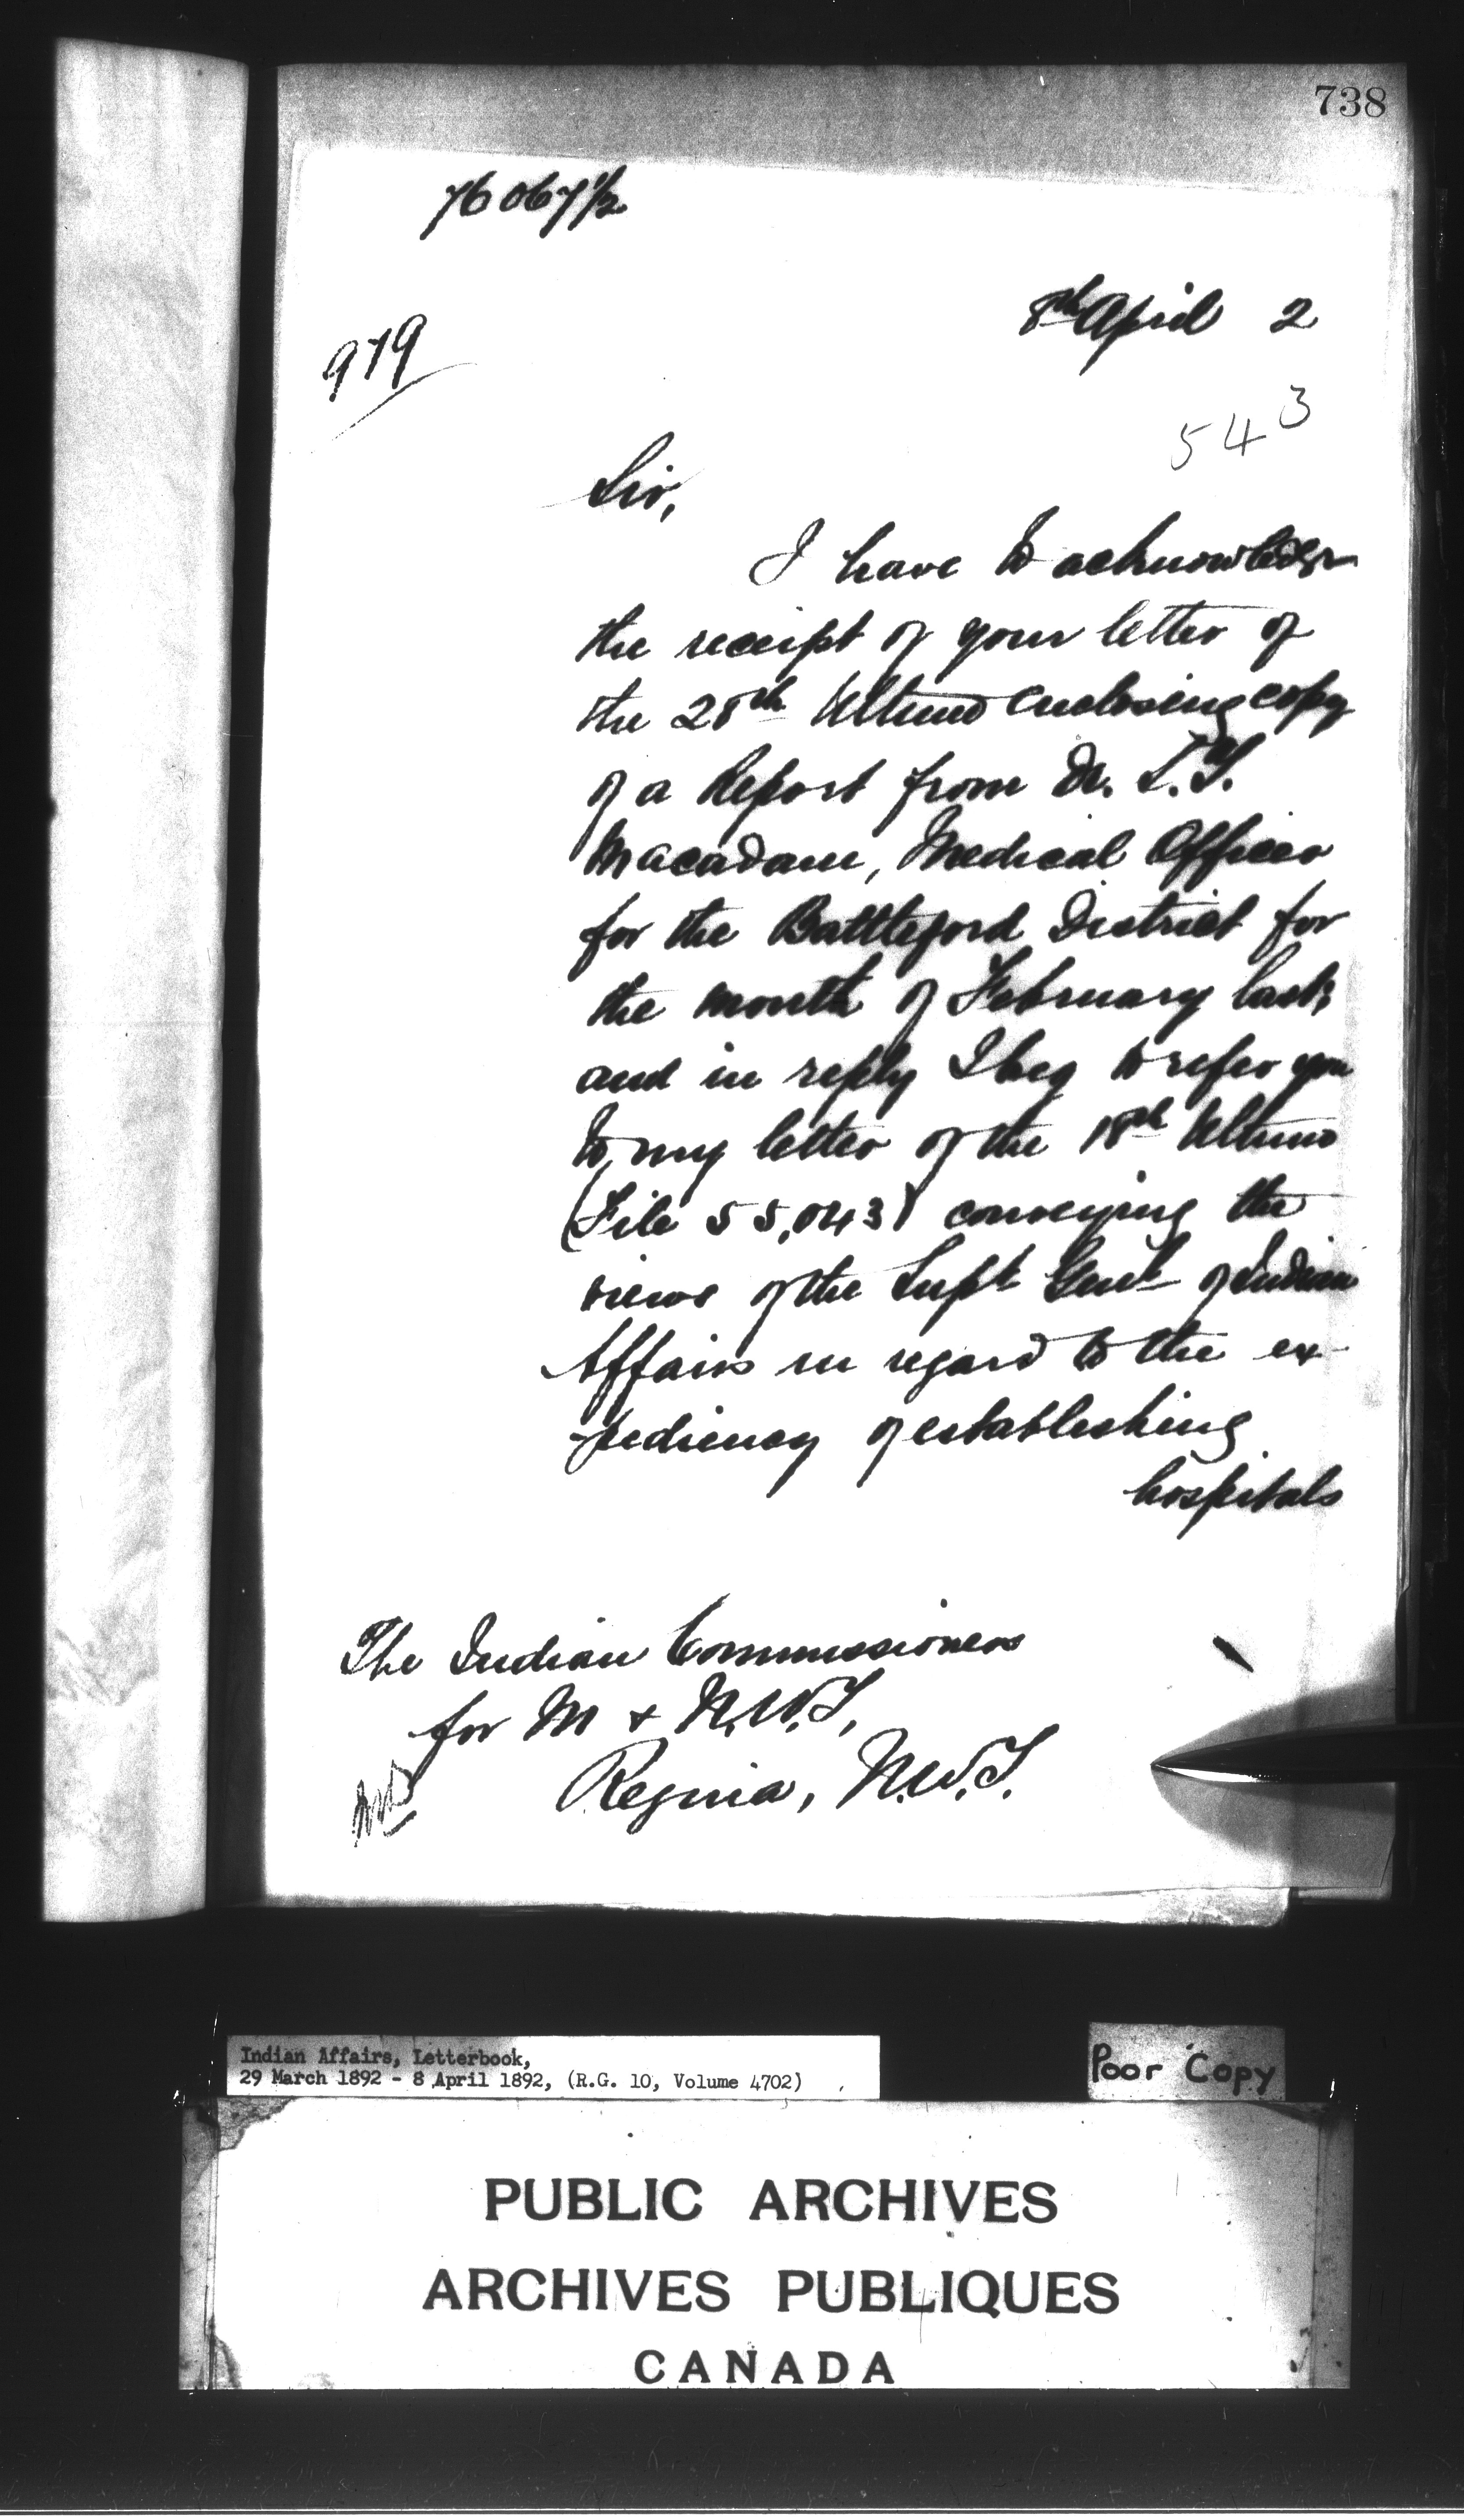 738
76067 1/2
8th April 2
979
543
Sir,
I have to acknowledge
the receipt of your letter of
the 28th Ultimo enclosing copy
of a Report from Dr. S.T.
Macadam, Medical Officer
for the Battleford District for
the month of February last;
and in reply I beg to refer you
to my letter of the 18th Ultimo
(File 55,043) conveying the
views of the Supt Genl of Indian
Affairs in regard to the ex-
pediency of establishing
hospitals
The Indian Commissioner
for M & N.W.T,
Regina, N.W.T.
Indian Affairs, Letterbook,
29 March 1892 - 8 April 1892, (R.G. 10, Volume 4702)
Poor Copy
PUBLIC ARCHIVES
ARCHIVES PUBLIQUES
CANADA